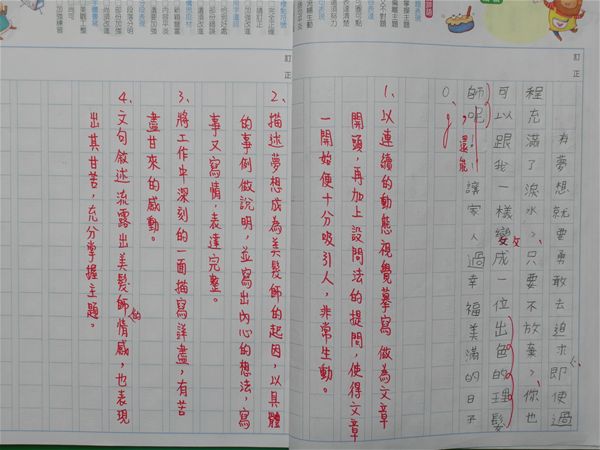 有夢想就要勇敢去追求,即使過
程充滿了淚水,只要不放棄,你也
可以跟我一樣變成一位出色的理髮
師呢!還能讓家人過幸福美滿的日子
。
1、以連續的動態視覺摹寫做為文章
開頭,再加上設問法的提問,使得文章
一開始便十分吸引人,非常生動。
2、描述夢想成為美髮師的起因,以具體
的事例做說明,並寫出內心的想法,寫
事又寫情,表達完整。
3、將工作中深刻的一面描寫詳盡,有苦
盡甘來的感動。
4、文句敘述流露出美髮師的情感,也表現
出其甘苦,充分掌握主題。
訂正
訂正